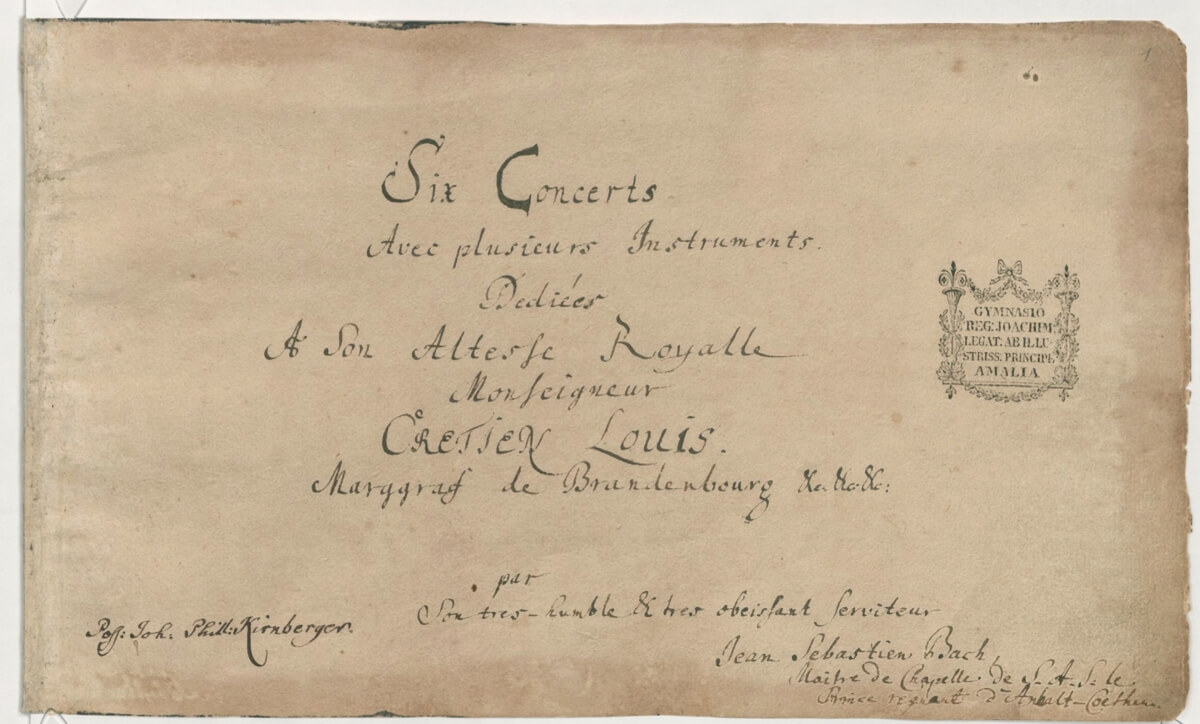 1
Six Concerts
Avec plusieurs Instruments.
Dediées
A Son Altesse Royalle
Monseigneur
CRETIEN LOUIS.
Marggraf de Brandenbourg &c. &c. &c:
par
Son tres-humble & tres obeissant serviteur
Jean Sebastien Bach,
Maitre de Chapelle de S. A. S. le
Prince regnant d'Anhalt-Coethen.
Poss: Joh. Phill: Kirnberger.
GYMNASIO
REG: JOACHIM:
LEGAT: AB ILLU-
STRISS: PRINCIPE
AMALIA